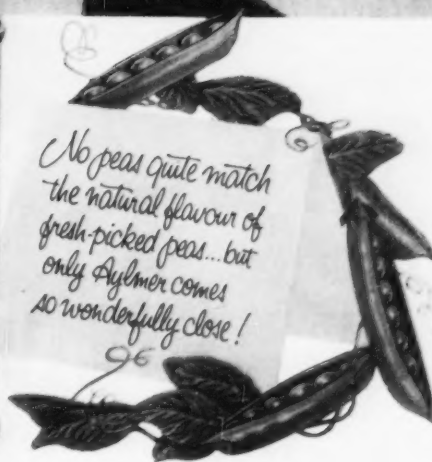 No peas quite match
the natural flavour of
fresh-picked peas...but
only Aylmer comes
so wonderfully close!